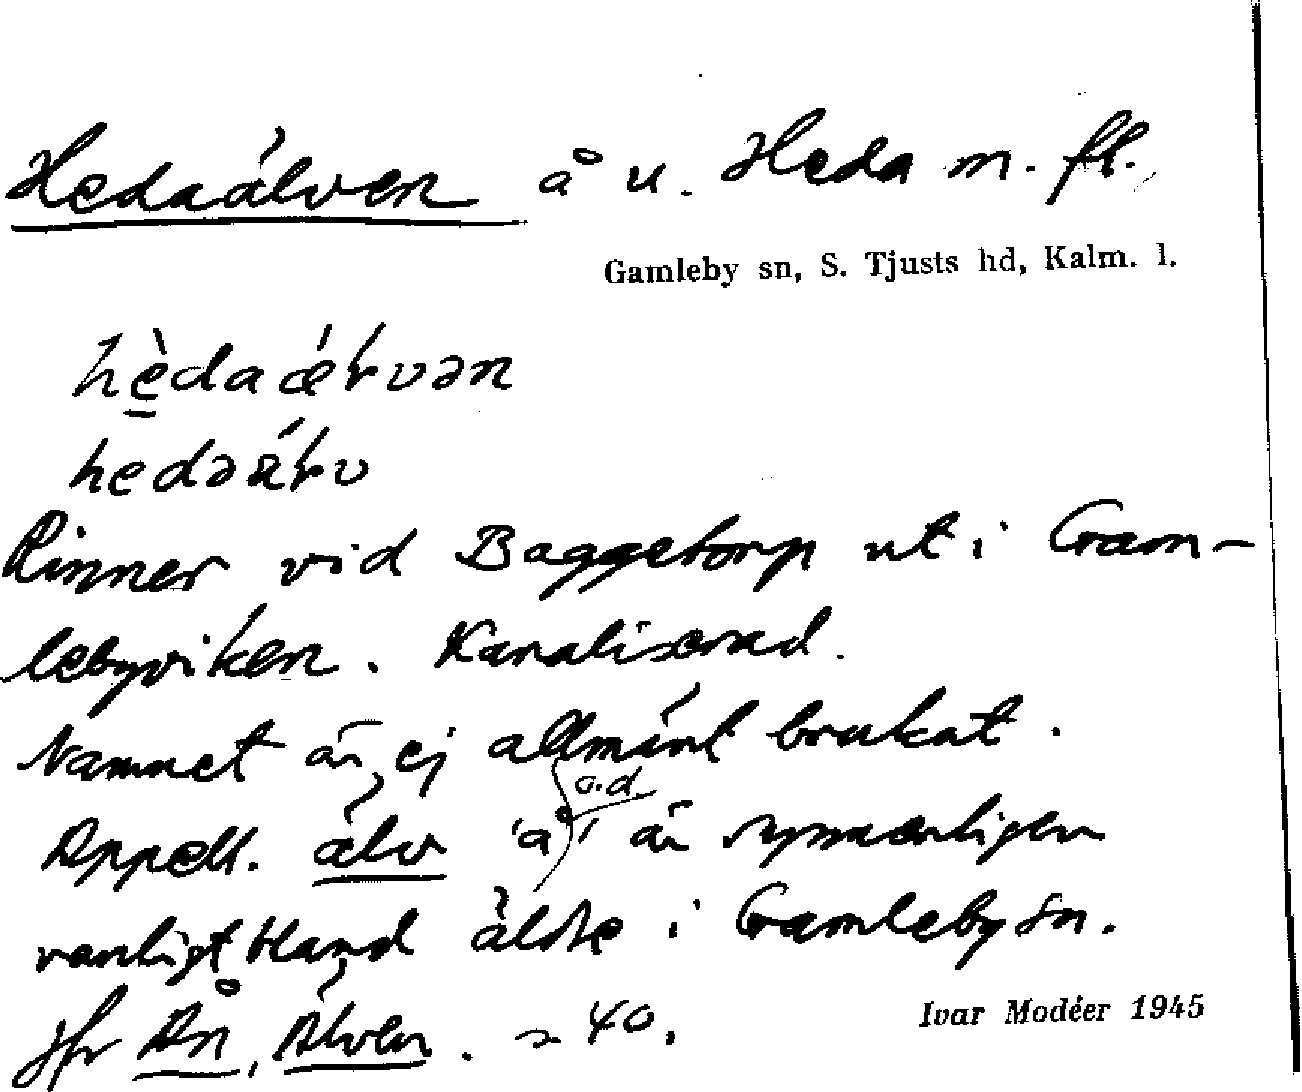 Hedaälven å u. Heda m. fl.
Gamleby sn, S. Tjusts hd, Kalm. l.
Rinner vid Baggetorp ut i Gam-
lebyviken. Kanaliserad.
Namnet är ej allmänt brukat.
o.d
Appell. älv 'å' är synnerligen
vanligt bland äldre i Gamleby sn.
Jfr Ån, Älven. 40.
Ivar Modéer 1945